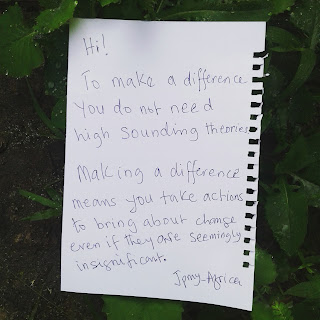 Hi!
To make a difference
You do not need
high sounding theories
Making a difference
means you take actions
to bring about change
even if they are seemingly
insignificant.
Jpmy_Africa